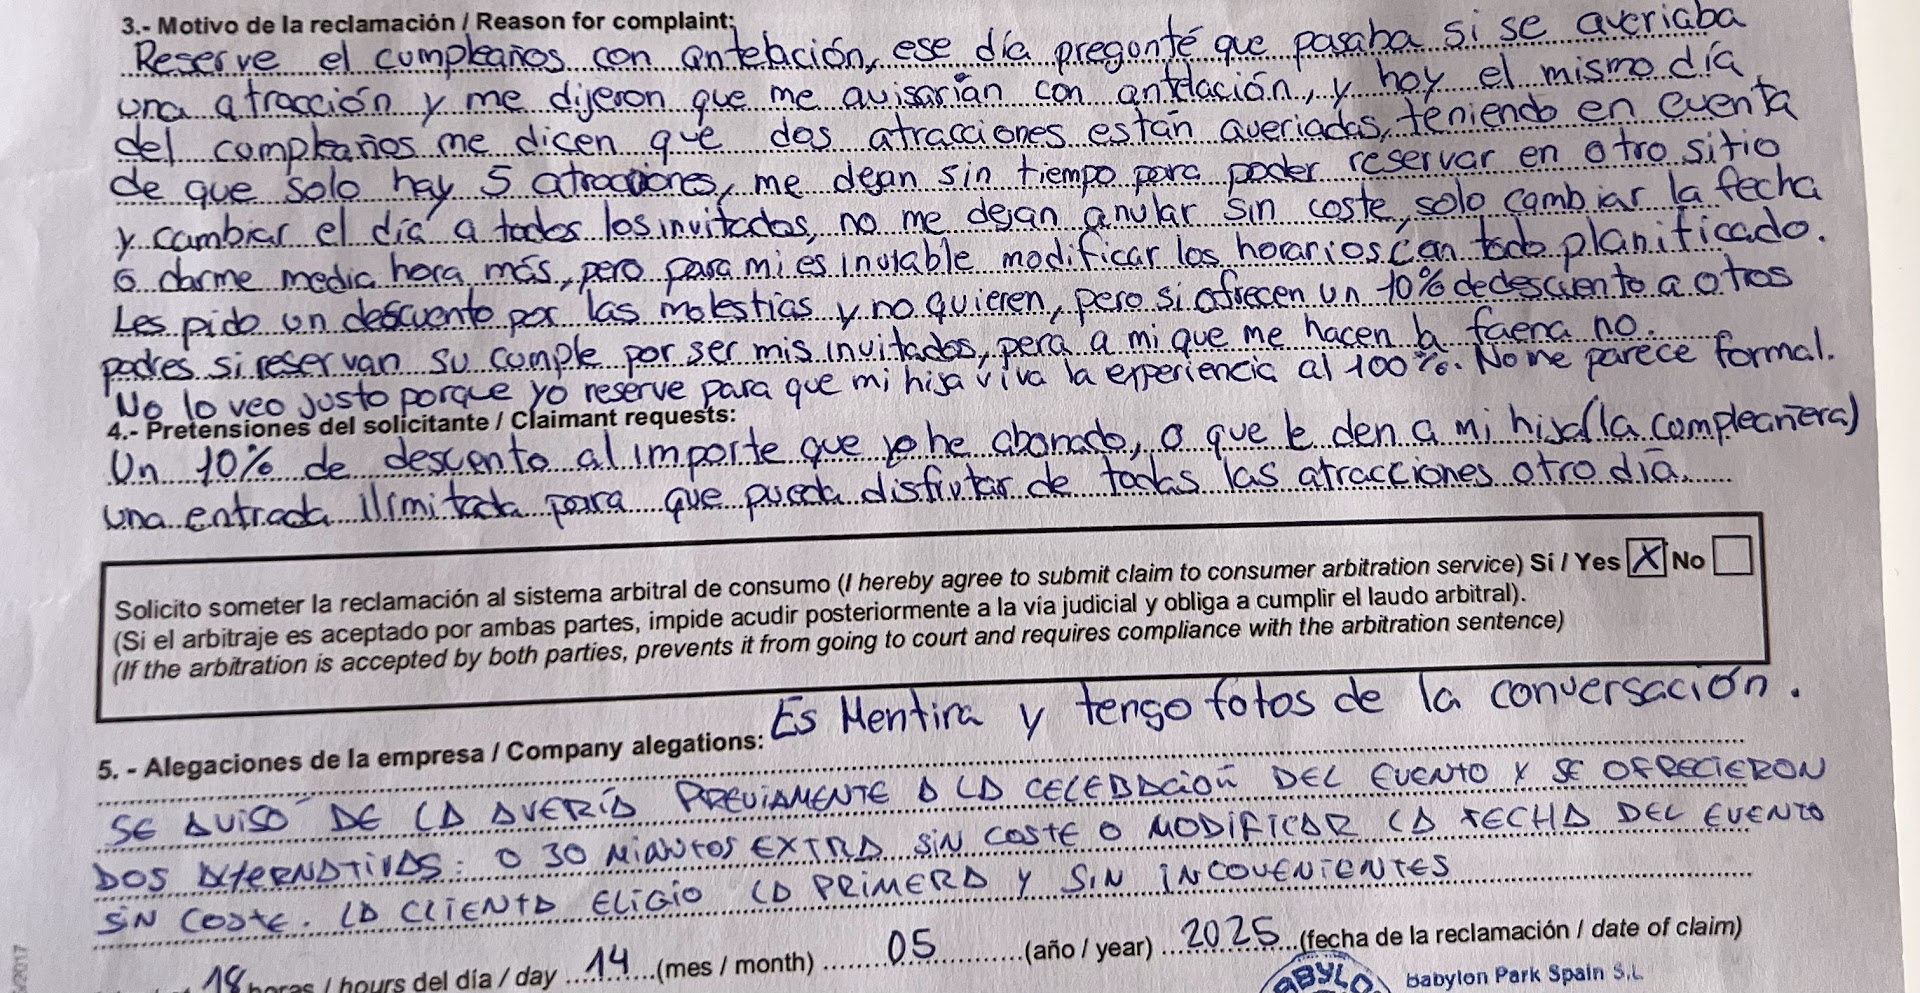 3.- Motivo de la reclamación / Reason for complaint:
Reserve el cumpleaños con antelación, ese día pregunté que pasaba si se averiaba
una atracción y me dijeron que me avisarían con antelación, y hoy el mismo día
del cumpleaños me dicen que dos atracciones están averiadas, teniendo en cuenta
de que solo hay 5 atracciones, me dejan sin tiempo para poder reservar en otro sitio
y cambiar el día a todos los invitados, no me dejan anular sin coste, solo cambiar la fecha
o darme media hora más, pero para mi es inviable modificar los horarios con todo planificado.
Les pido un descuento por las molestias y no quieren, pero si ofrecen un 10% de descuento a otros
padres si reservan su cumple por ser mis invitados, pero a mi que me hacen la faena no.
No lo veo justo porque yo reserve para que mi hija viva la experiencia al 100%. No me parece formal.
4.- Pretensiones del solicitante / Claimant requests:
Un 10% de descuento al importe que yo he abonado, o que le den a mi hija (la cumpleañera)
una entrada ilimitada para que pueda disfrutar de todas las atracciones otro día.
Solicito someter la reclamación al sistema arbitral de consumo (I hereby agree to submit claim to consumer arbitration service) Sí / Yes X No
(Si el arbitraje es aceptado por ambas partes, impide acudir posteriormente a la vía judicial y obliga a cumplir el laudo arbitral).
(If the arbitration is accepted by both parties, prevents it from going to court and requires compliance with the arbitration sentence)
Es Mentira y tengo fotos de la conversación.
5. - Alegaciones de la empresa / Company alegations:
SE AVISÓ DE LA AVERÍA PREVIAMENTE A LA CELEBRACIÓN DEL EVENTO Y SE OFRECIERON
DOS ALTERNATIVAS: O 30 MINUTOS EXTRA SIN COSTE O MODIFICAR LA FECHA DEL EVENTO
SIN COSTE. LA CLIENTA ELIGIO LA PRIMERA Y SIN INCOVENIENTES
18 horas / hours del día / day 14 (mes / month) 05 (año / year) 2025 (fecha de la reclamación / date of claim)
Babylon Park Spain S.L